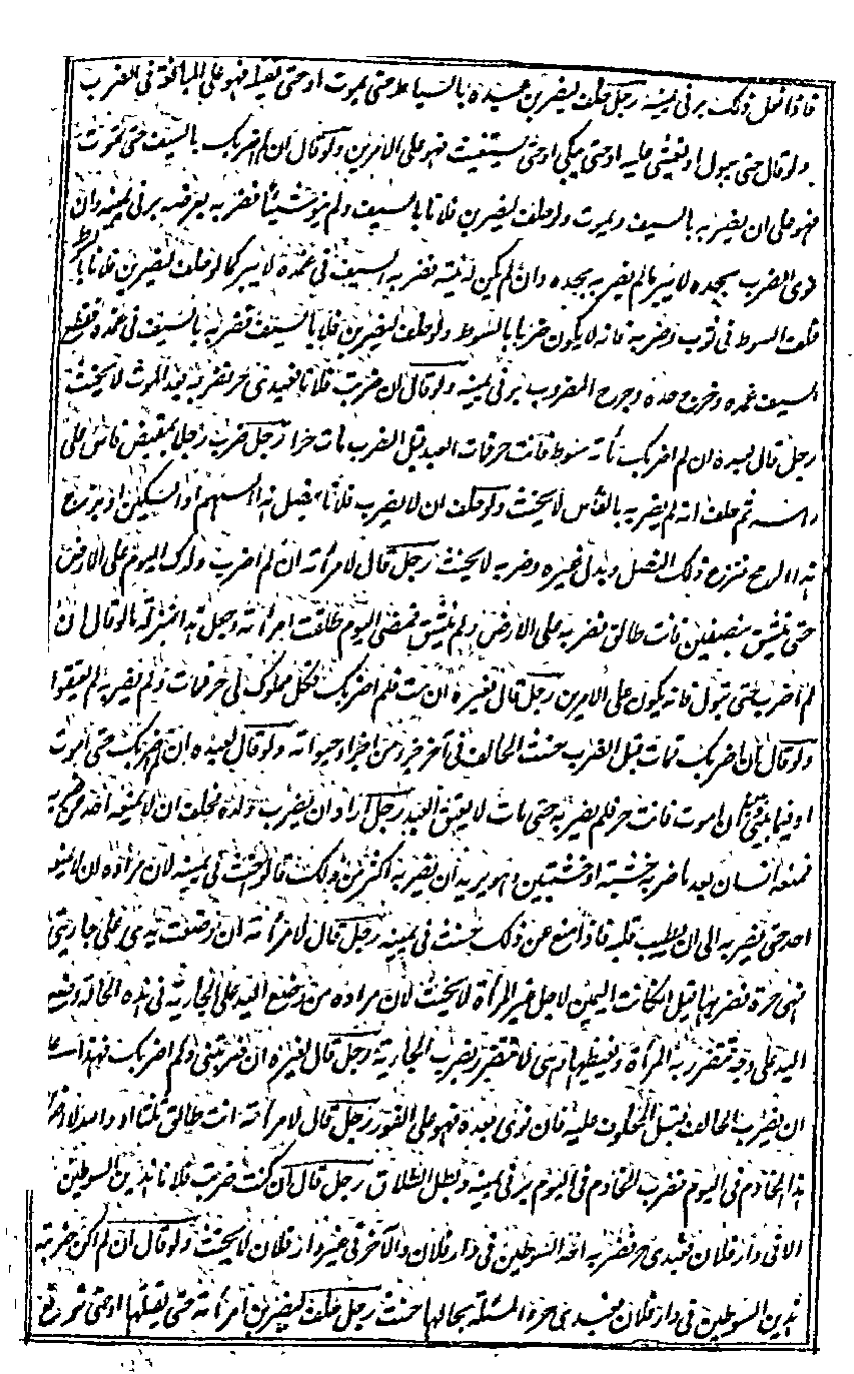 فاذا فعل ذلك بر فى يمينه رجل حلف ليضربن عبيده بالسياط حتى يموت او حتى يقتله فهو على المبالغة فى الضرب
ولو قال حتى يبول او يغشى عليه او حتى يبكى او حتى يستغيث فهو على الامرين ولو قال ان لم اضربك بالسيف حتى تموت
فهو على ان يضربه بالسيف ويموت ولو حلف ليضربن فلانا بالسيف ولم ينو شيئا فضربه بعرضه بر فى يمينه وان
نوى الضرب بحده لا يبر ما لم يضربه بحده وان لم يكن له نية فضربه السيف فى غمده لا يبر كما لو حلف ليضربن فلانا بالسوط
فلف السوط فى ثوب وضربه فانه لا يكون ضربا بالسوط ولو حلف ليضربن فلانا بالسيف فضربه بالسيف فى غمده فقطع
السيف غمده وخرج حده وجرح المضروب بر فى يمينه ولو قال ان ضربت فلانا فعبدى حر فضربه بعد الموت لا يحنث
رجل قال لعبده ان لم اضربك مائة سوط فانت حر فمات العبد قبل الضرب مات حرا رجل ضرب رجلا بمقبض فاس على
راسه ثم حلف انه لم يضربه بالفاس لا يحنث ولو حلف ان لا يضرب فلانا بنصل هذا السهم او السكين او بزج
هذا الرمح فنزع ذلك النصل وبدل غيره وضربه لا يحنث رجل قال لامرأته ان لم اضرب ولدك اليوم على الارض
حتى ينشق بنصفين فانت طالق فضربه على الارض ولم ينشق فمضى اليوم طلقت امرأته وجعل هذا بمنزلة ما لو قال ان
لم اضرب حتى تبول فانه يكون على الامرين رجل قال لغيره ان مت فلم اضربك فكل مملوك لى حر فمات ولم يضربه لم يعتقوا
ولو قال ان لم اضربك فمات قبل الضرب حنث الحالف فى آخر جزء من اجزاء حيواته ولو قال لعبده ان لم اضربك حتى اموت
او فيما بينى وبين ان اموت فانت حر فلم يضربه حتى مات لا يعتق العبد رجل اراد ان يضرب ولده فحلف ان لا يمنعه احد من ضربه
فمنعه انسان بعد ما ضربه خشبة او خشبتين وهو يريد ان يضربه اكثر من ذلك قالوا حنث فى يمينه لان مراده ان لا يمنعه
احد حتى يضربه الى ان يطيب قلبه فاذا منع عن ذلك حنث فى يمينه رجل قال لامرأته ان وضعت يدى على جاريتى
فهى حرة فضربها قيل ان كانت اليمين لاجل غير المرأة لا يحنث لان مراده من وضع اليد على الجارية فى هذه الحالة وضع
اليد على وجه تتضرر به المرأة ويغيظها وهى لا تتضرر بضرب الجارية رجل قال لغيره ان ضربتنى ولم اضربك فهذا على
ان يضرب الحالف قبل المحلوف عليه فان نوى بعده فهو على الفور رجل قال لامرأته انت طالق ثلثا او واحدة لاضربن
هذا الخادم فى اليوم فضرب الخادم فى اليوم بر فى يمينه وبطل الطلاق رجل قال ان كنت ضربت فلانا هذين السوطين
الا فى دار فلان فعبدى حر فضربه احد السوطين فى دار فلان والآخر فى غير دار فلان لا يحنث ولو قال ان لم اكن ضربته
هذين السوطين فى دار فلان فعبدى حر والمسئلة بحالها حنث رجل حلف ليضربن امرأته حتى يقتلها او حتى